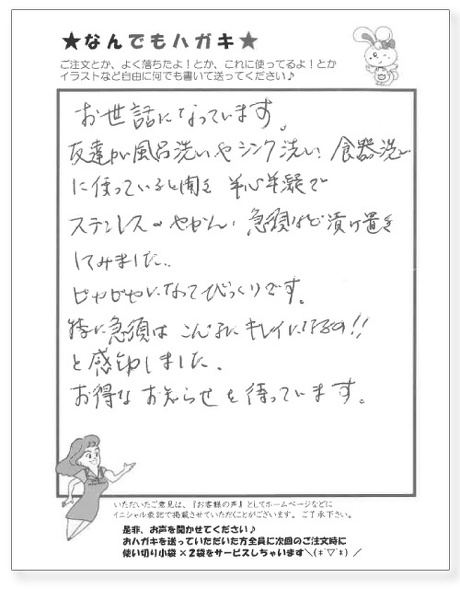 ★なんでもハガキ★
ご注文とか、よく落ちたよ！とか、これに使ってるよ！とか
イラストなど自由に何でも書いて送ってください♪
お世話になっています。
友達が風呂洗いやシンク洗い、食器洗い
に使っていると聞き 半心半疑で
ステンレスのやかん、急須など漬け置き
してみました..
ピカピカになってびっくりです。
特に急須は こんなにキレイになるの!!
と感動しました。
お得な お知らせを待っています。
いただいたご意見は、『お客様の声』としてホームページなどに
イニシャル表記で掲載させていただくことがございます。ご了承下さい。
是非、お声を聞かせてください♪
おハガキを送っていただいた方全員に次回のご注文時に
使い切り小袋×2袋をサービスしちゃいます＼(*ˊ▽ˋ*)／